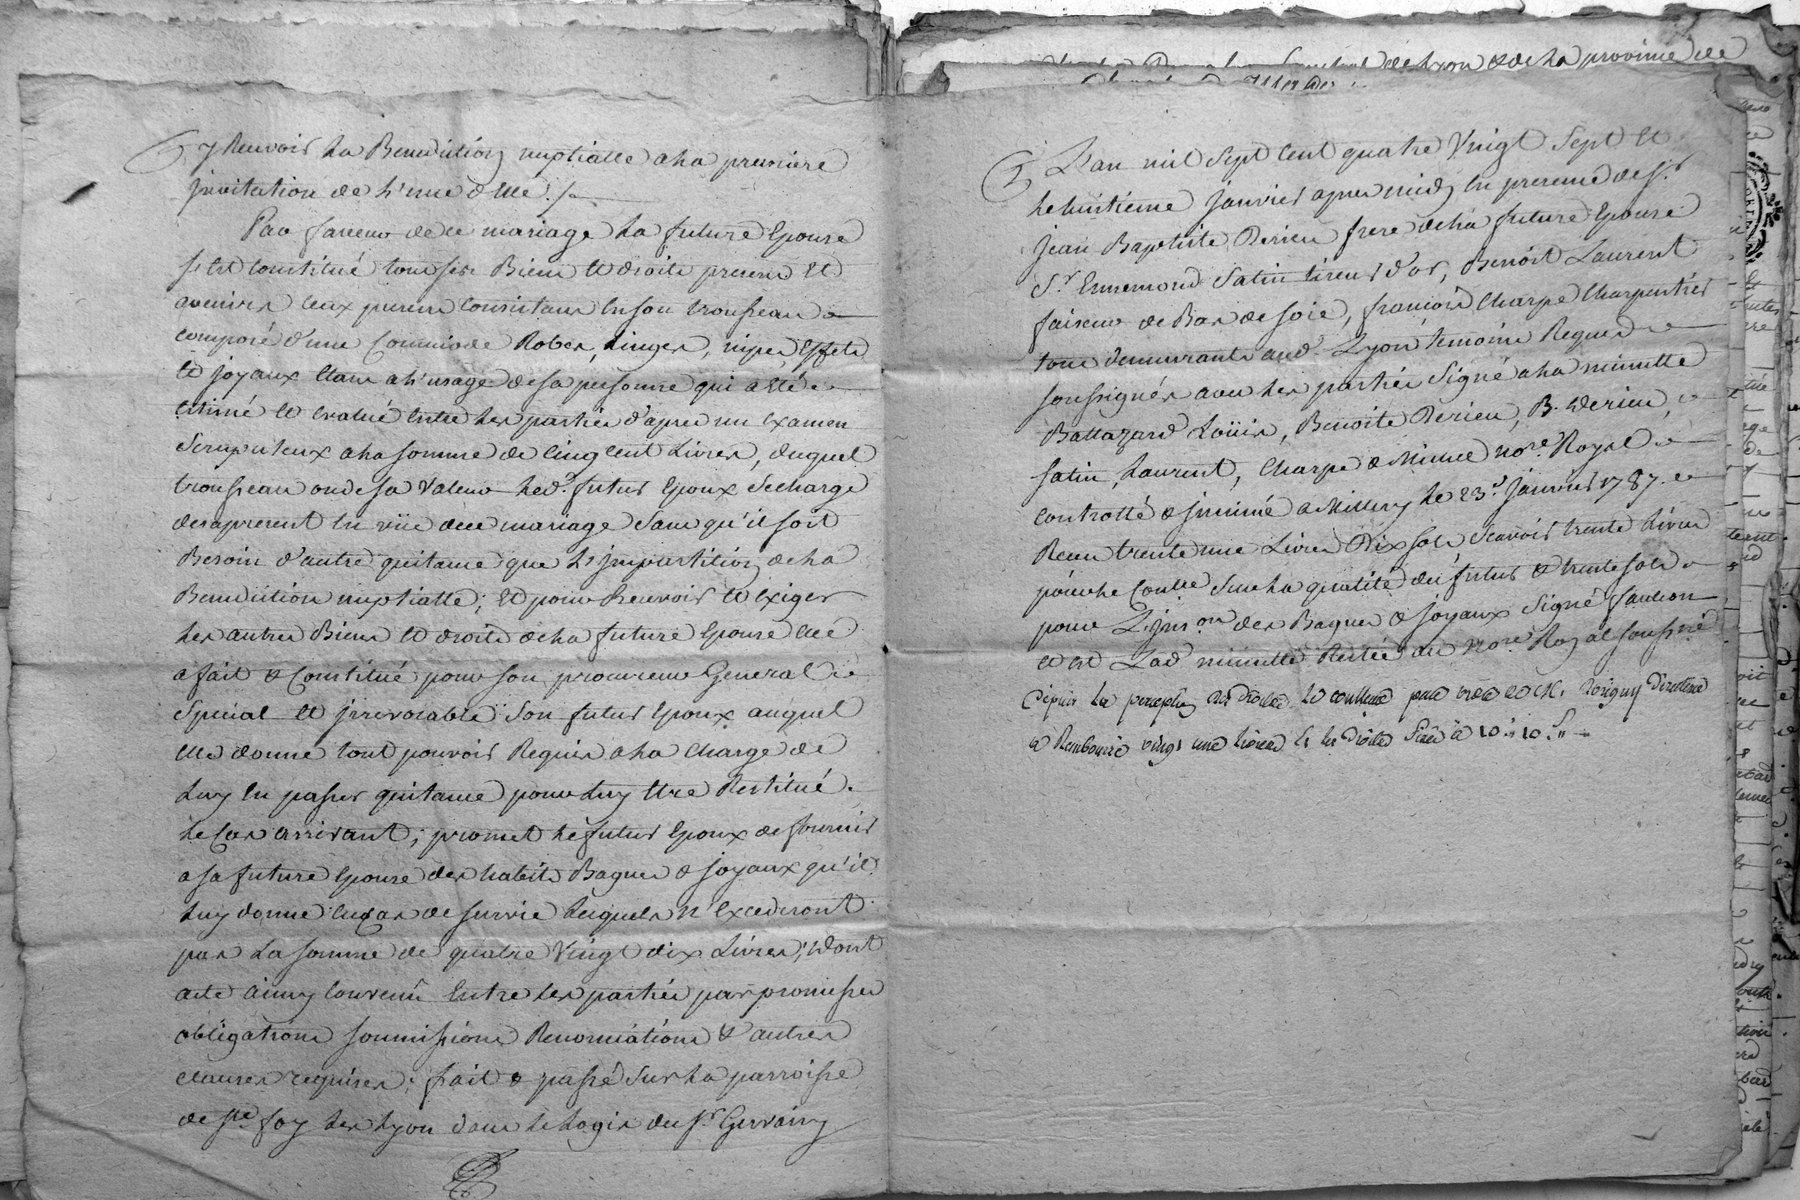 y Recevoir La Benediction nuptialle a La premiere
jnvitation de L'une d'elle ./.
Par faveur de ce mariage La future Epouse
s'est Constitué tous ses Biens et droits presens et
avenirs Ceux presens Consistans En son trousseau
composé d'une Commode Robes, Linges, nipes, Effets
et joyaux Etans a L'usage de sa personne qui a Eté
Estimé et Evalué Entre Les parties d'apres un Examen
Scrupuleux a La somme de Cinq Cent Livres, duquel
trousseau ou de sa Valeur Led. futur Epoux Se charge
des apresent En vüe de ce mariage Sans qu'il soit
Besoin d'autre quitance que L'jmpartition de La
Benediction nuptialle; Et pour Recevoir et Exiger
Les autres Biens et droits de La future Epouse Elle
a fait & Constitué pour son procureur General
Special et jrrevocable Son futur Epoux auquel
Elle donne tout pouvoir Requis a La Charge de
Luy En passer quitance pour Luy Etre Restitué
Le Cas arrivant; promet Le futur Epoux de fournir
a sa future Epouse des habits Bagues & joyaux qu'il
Luy donne En Cas de survie Lesquels n'Excederont
pas La somme de quatre Vingt dix Livres; dont
acte ainsy Convenû Entre Les parties par promesses
obligations soumissions Renonciations & autres
clauses requises; fait & passé sur La parroisse
de Ste foy Les Lyon dans Le Logis du sr Gervais
L'an mil Sept Cent quatre Vingt Sept Et
Le huitieme Janvier apres midy En presence de sr.
jean Baptiste Derieu frere de La future Epouse
Sr. Ennemond Satin tireur d'or, Benoit Laurent
faiseur de Bas de soie, francois Charpe Charpentier
tous demeurants aud. Lyon temoins Requis
soussignés avec Les parties Signé a La minutte
Baltazard Loüis, Benoite Derieu, B. Derieu,
satin, Laurent, Charpe & Michel nore. Royal
Controllé & jnsinué a Millery Le 23e. janvier 1787.
Recu trente une Livres Dix sols Scavoir trente Livres
pour Le Conlle Sur La qualité du futur & trente sols
pour L'jnson des Bagues & joyaux Signé faucon
et est Lad. minutte Restée au nore. Royal soussigné
Depuis La perception des droits Le controlleur
a Remboursé vingt une Livres Et Les Droits fixés à 10" 10s"